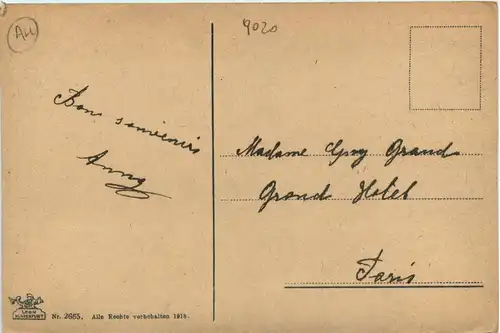 AK
9020
Bons souvenirs
Anny
Madame Guy Grand
Grand Hotel
Paris
LEON
KLAGENFURT
Nr. 2665. Alle Rechte vorbehalten 1918.